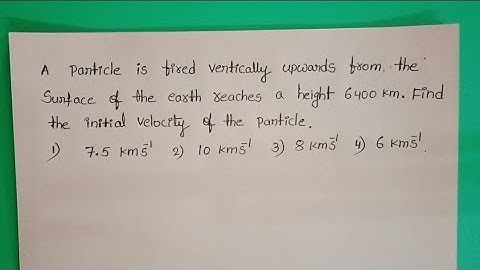 A particle is fired vertically upwards from the
Surface of the earth reaches a height 6400 km. Find
the initial velocity of the particle.
1) 7.5 kms⁻¹ 2) 10 kms⁻¹ 3) 8 kms⁻¹ 4) 6 kms⁻¹.